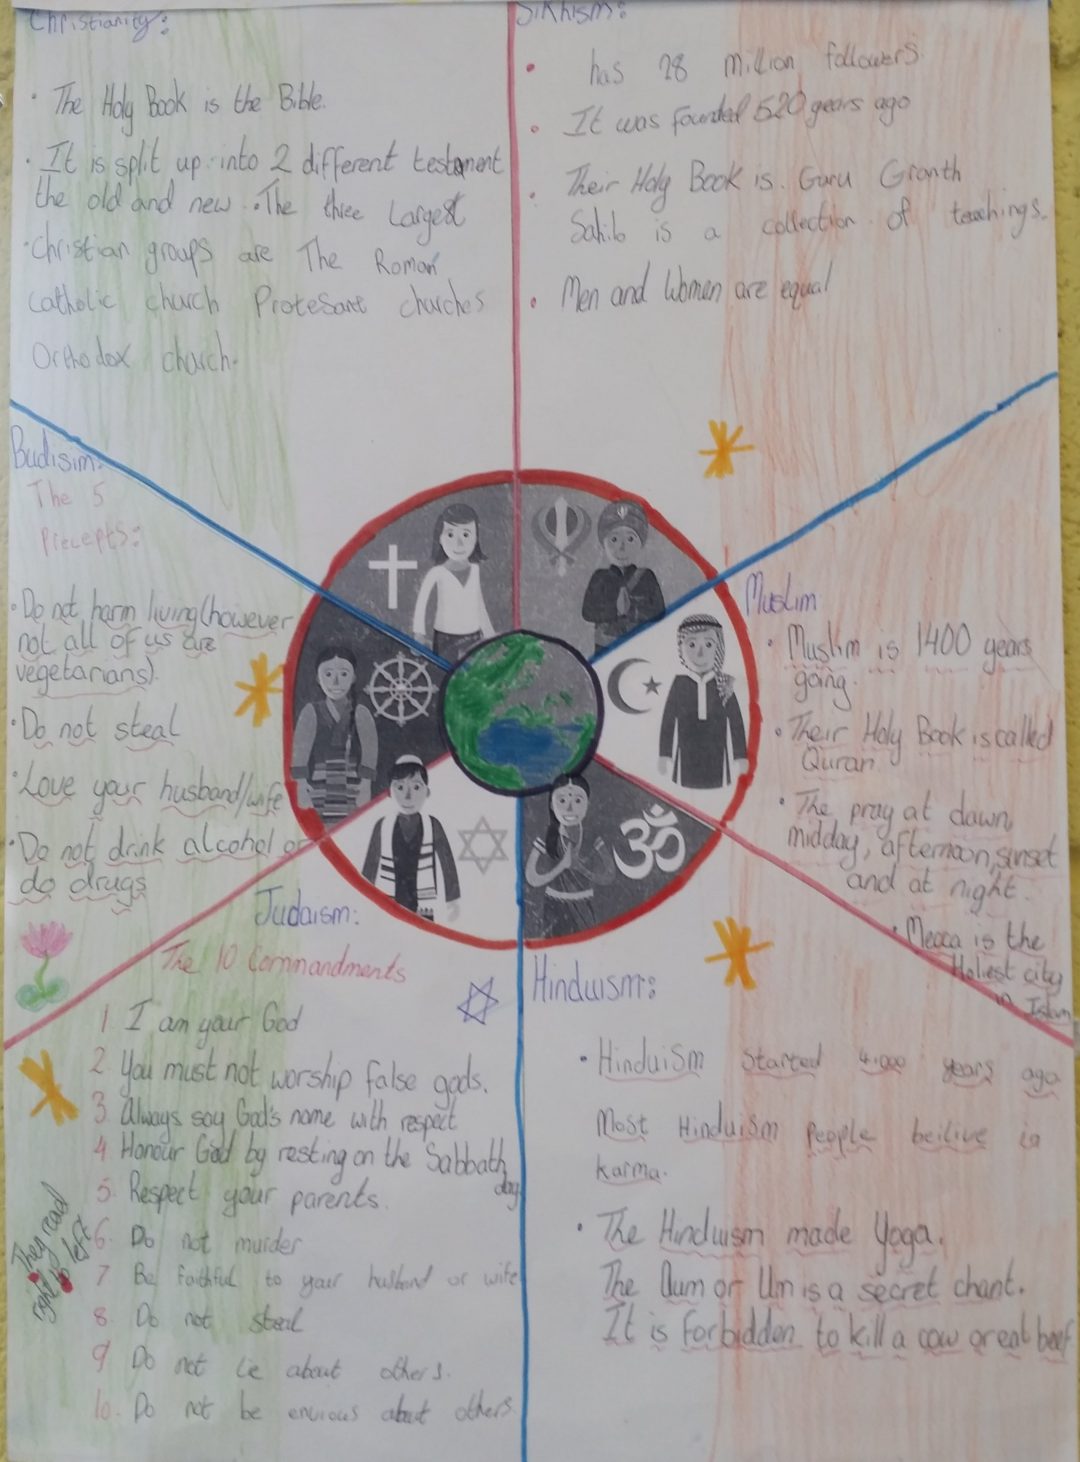 Christianity:
· The Holy Book is the Bible.
· It is split up into 2 different testament
the old and new. · The three Largest
· Christian groups are The Roman
Catholic church Protesant churches
Orthodox church.
Sikhism:
· has 28 million followers.
· It was founded 520 years ago
· Their Holy Book is Guru Granth
Sahib is a collection of teachings.
· Men and Women are equal
Budisim:
The 5
Precepts:
· Do not harm living (however
not all of us are
vegetarians).
· Do not steal
· Love your husband/wife
· Do not drink alcohol or
do drugs
Muslim
· Muslim is 1400 years
going.
· Their Holy Book is called
Quran
· The pray at dawn,
midday, afternoon, sunset
and at night.
· Mecca is the
Holiest city
in Islam
Judaism:
The 10 Commandments
1 I am your God
2 You must not worship false gods.
3 Always say God's name with respect
4 Honour God by resting on the Sabbath
day
5. Respect your parents.
6. Do not murder
7 Be faithful to your husband or wife
8. Do not steal
9 Do not lie about others.
10. Do not be envious about others.
They read
right to left
Hinduism:
· Hinduism started 4.000 years ago
Most Hinduism people beilive in
karma.
· The Hinduism made Yoga.
The Aum or Um is a secret chant.
It is forbidden to kill a cow or eat beef
ॐ